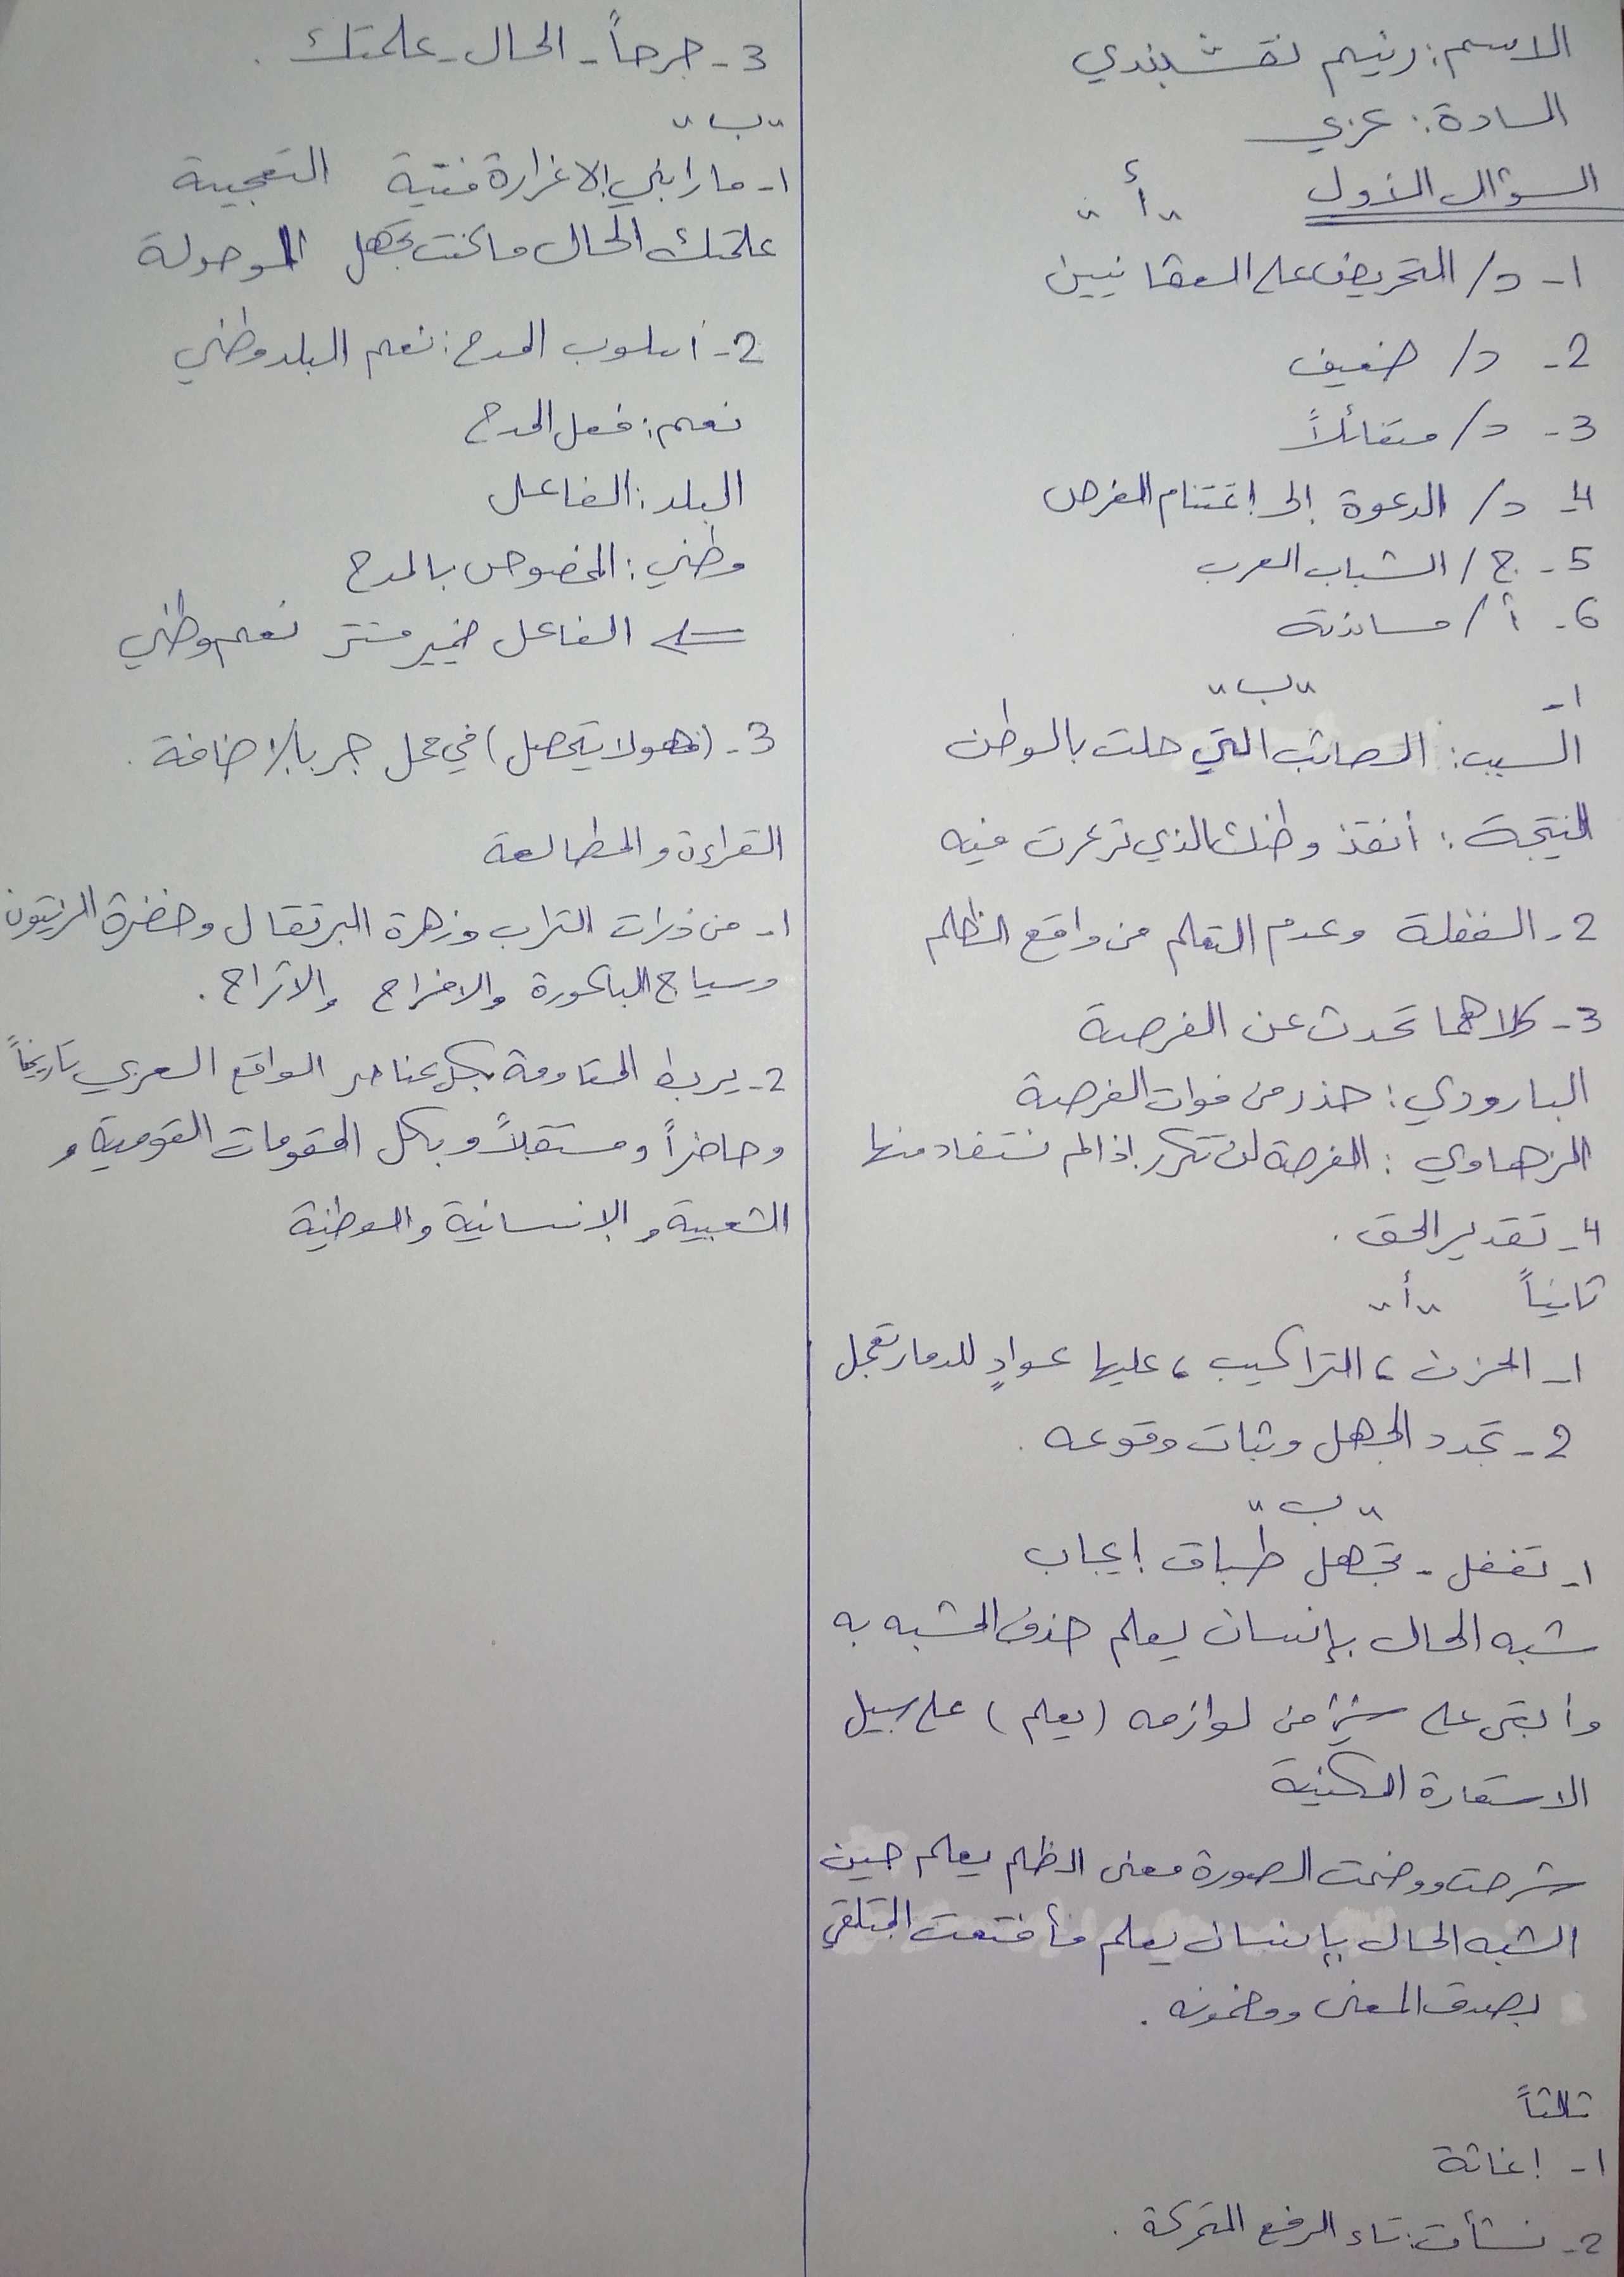 الاسم: رنيم نقشبندي
المادة: عربي
السؤال الأول "أ"
1- د/ التحريض على العثمانيين
2- د/ ضعيف
3- د/ متفائلاً
4- د/ الدعوة إلى اغتنام الفرص
5- ج/ الشباب العرب
6- أ/ مساندته
"ب"
1-
السبب: المصائب التي حلت بالوطن
النتيجة: أنقذ وطنك الذي ترعرعت فيه
2- الغفلة وعدم التعلم من واقع الظلم
3- كلاهما تحدث عن الفرصة
البارودي: حذر من فوات الفرصة
الزهاوي: الفرصة لن تتكرر إذا لم نستفاد منها
4- تقدير الحق.
ثانياً "أ"
1- الحزن، التراكيب، عليها عوادٍ للدمار تعجل
2- تجدد الجهل وثبات وقوعه.
"ب"
1- تغفل - تجهل طباق إيجاب
شبه الحال بإنسان يعلم حذف المشبه به
وأبقى على شيئ من لوازمه (يعلم) على سبيل
الاستعارة المكنية
شرحت ووضحت الصورة معنى الظلم يعلم حين
الشبه الحال بإنسان يعلم فأقنعت المتلقي
بصدق المعنى ومضمونه.
ثالثاً
1- إغاثة
2- نشأت: تاء الرفع المتحركة.
3- جرحاً - الحال - علمتك.
"ب"
1- ما رابني إلا غرارة فتية التعجبية
علمتك الحال ما كنت تجهل الموصولة
2- أسلوب المدح: نعم البلد وطني
نعم: فعل المدح
البلد: الفاعل
وطني: المخصوص بالمدح
الفاعل ضمير مستتر نعم وطني
3- (فهو لا يتحصل) في محل جر بالإضافة.
القراءة والمطالعة
1- من ذرات التراب وزهرة البرتقال وخضرة الزيتون
وسياج الباكورة والافراح والاتراح.
2- يربط المقاومة بكل عناصر الواقع العربي تاريخاً
وحاضراً ومستقبلاً وبكل المقومات القومية و
الشعبية والإنسانية والوطنية